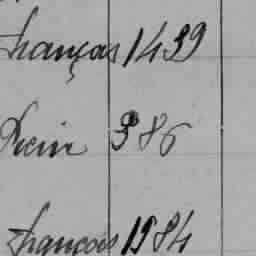 françois 1439
386
françois 1984